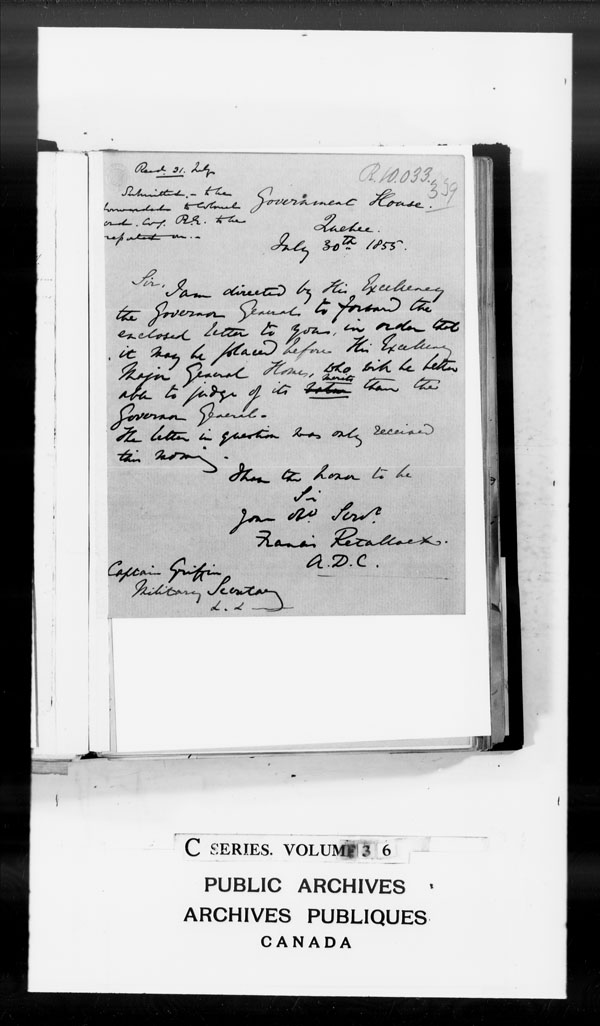 Recd 31 July
R.10.033.
359
Submitted, - to be
forwarded to Colonel
Com. Rl. Eng. to be
reported on. -
Government House.
Quebec.
July 30th 1855.
Sir,
I am directed by His Excellency
the Governor General to forward the
enclosed letter to you, in order that
it may be placed before His Excellency
Major General Home, who will be better
able to judge of its merits than the
Governor General -
The letter in question was only received
this morning.
I have the honor to be
Sir
Your Obt. Servt.
Francis Retallack.
A.D.C.
Captain Griffin
Military Secretary
C SERIES. VOLUME 36
PUBLIC ARCHIVES
ARCHIVES PUBLIQUES
CANADA